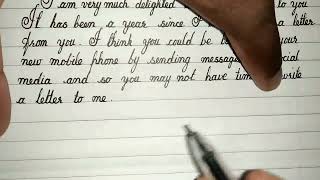 I am very much delighted to you
It has been a year since I a letter
from you. I think you could be your
new mobile phone by sending message social
media and so you may not have time write
a letter to me.